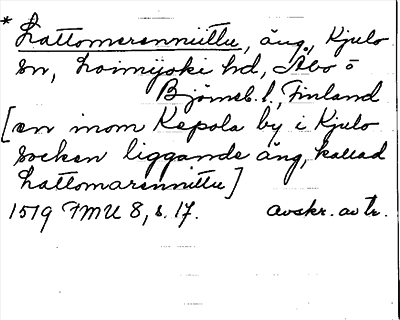 * Lattomarenniittu, äng, Kjulo
sn, Loimijoki hd, Åbo o
Björneb. l., Finland
[en inom Kepola by i Kjulo
socken liggande äng, kallad
Lattomarennittu]
1519 FMU 8, s. 17. avskr. av tr.